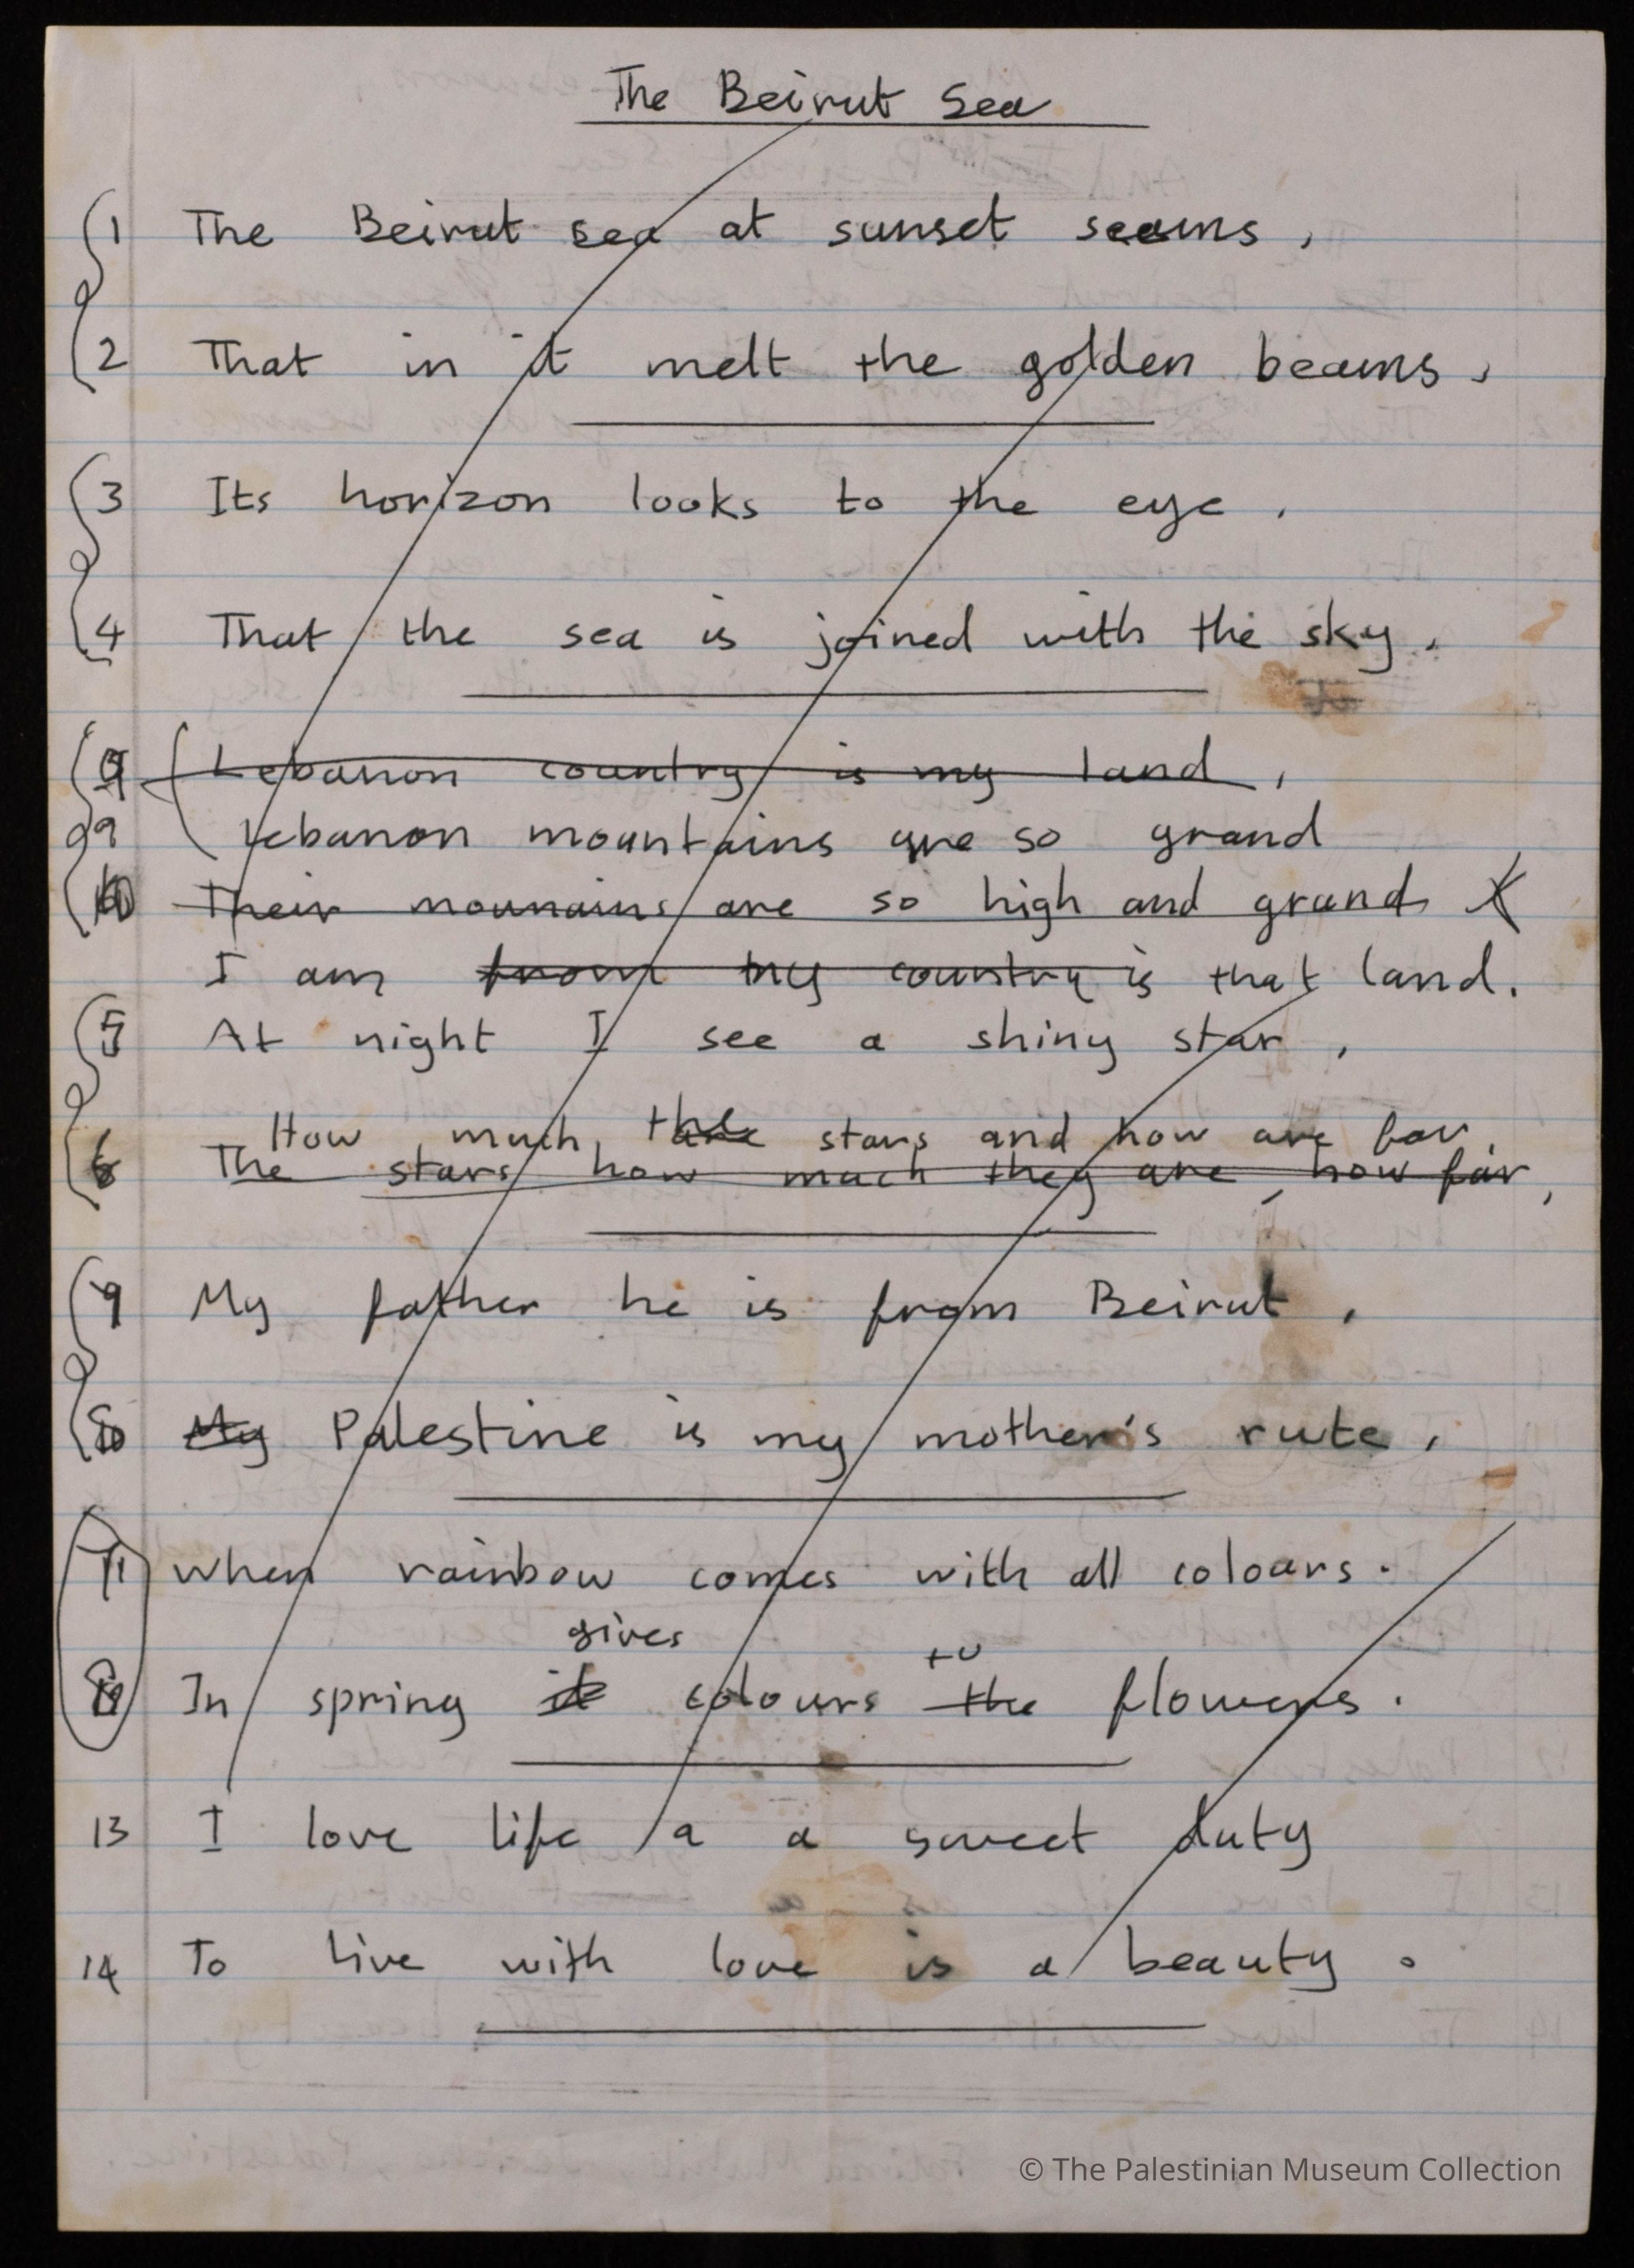 The Beirut Sea
1 The Beirut sea at sunset seems,
2 That in it melt the golden beams,
3 Its horizon looks to the eye,
4 That the sea is joined with the sky,
Lebanon country is my land,
9 Lebanon mountains are so grand
10 Their mounains are so high and grand X
I am from my country is that land.
5 At night I see a shiny star,
How much, the stars and how are far,
6 The stars how much they are, how far,
9 My father he is from Beirut,
10 My Palestine is my mother's rute,
11 When rainbow comes with all colours.
gives to
In spring it colours the flowers.
13 I love life a a sweet duty
14 To live with love is a beauty.
© The Palestinian Museum Collection